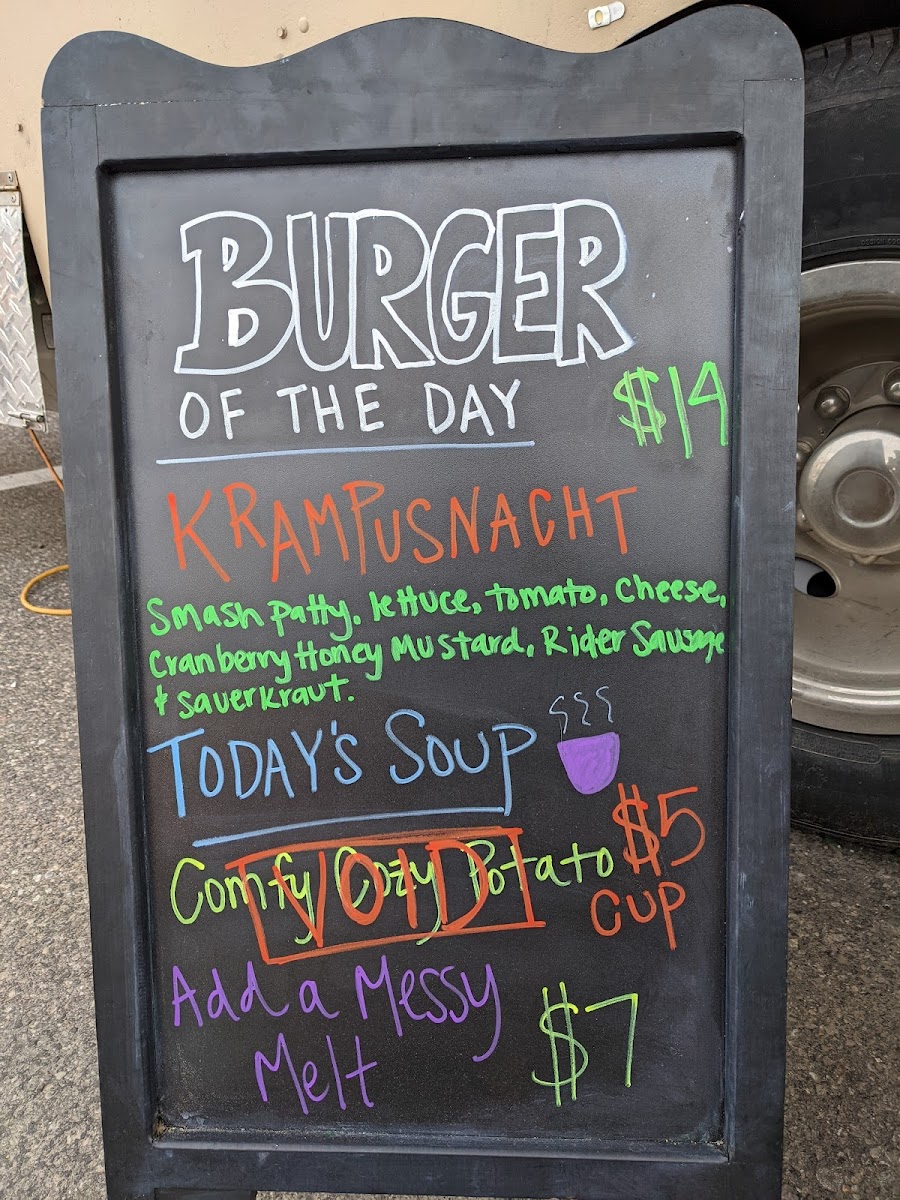 BURGER
OF THE DAY
$14
KRAMPUSNACHT
Smash patty, lettuce, tomato, Cheese,
Cranberry Honey Mustard, Rider Sausage
& Sauerkraut.
TODAY'S SOUP
Comfy Cozy Potato $5
VOID
CUP
Add a Messy
Melt $7